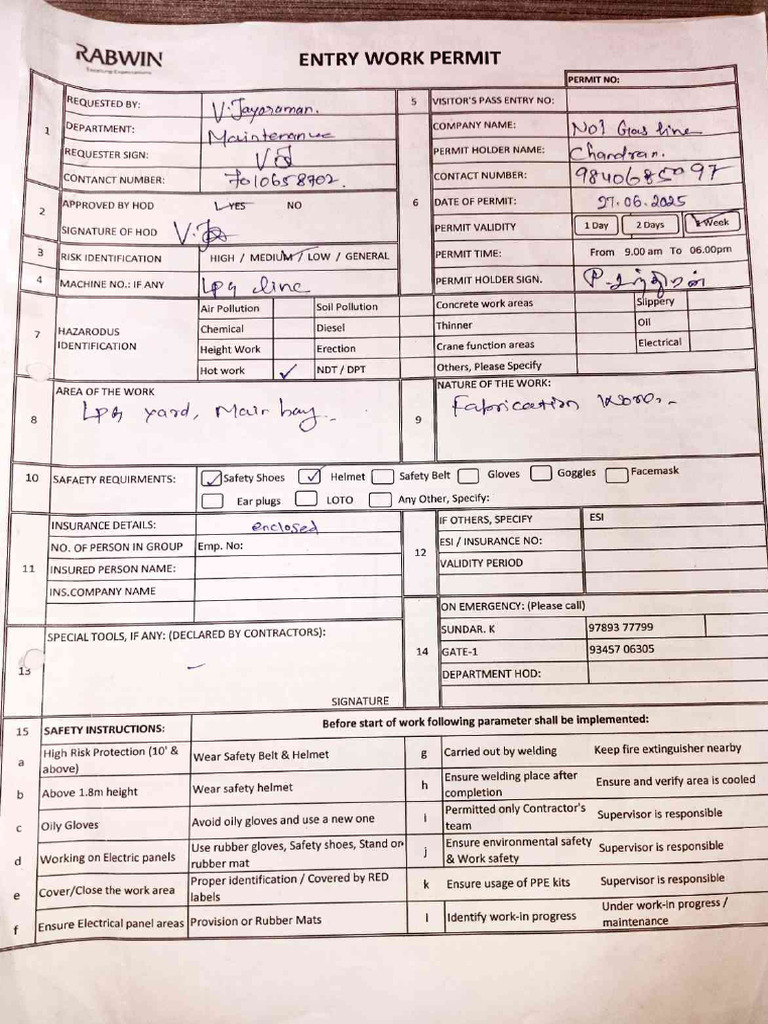 RABWIN
ENTRY WORK PERMIT
PERMIT NO:
1 REQUESTED BY: V. Jayaraman.
DEPARTMENT: Maintenance
REQUESTER SIGN: VJ
CONTANCT NUMBER: 7010658702.
5 VISITOR'S PASS ENTRY NO:
2 APPROVED BY HOD YES NO
SIGNATURE OF HOD
3 RISK IDENTIFICATION HIGH / MEDIUM / LOW / GENERAL
4 MACHINE NO.: IF ANY LPG line
6 COMPANY NAME: No1 Gas line
PERMIT HOLDER NAME: Chandran.
CONTACT NUMBER: 9840685097
DATE OF PERMIT: 27.06.2025
PERMIT VALIDITY 1 Day 2 Days Week
PERMIT TIME: From 9.00 am To 06.00pm
PERMIT HOLDER SIGN.
7 HAZARODUS IDENTIFICATION
Air Pollution Soil Pollution Concrete work areas Slippery
Chemical Diesel Thinner Oil
Height Work Erection Crane function areas Electrical
Hot work ✓ NDT / DPT Others, Please Specify
8 AREA OF THE WORK
LPG yard, Main bay.
9 NATURE OF THE WORK:
Fabrication
10 SAFAETY REQUIRMENTS: ✓ Safety Shoes ✓ Helmet Safety Belt Gloves Goggles Facemask
Ear plugs LOTO Any Other, Specify:
11 INSURANCE DETAILS: enclosed
NO. OF PERSON IN GROUP Emp. No:
INSURED PERSON NAME:
INS.COMPANY NAME
12 IF OTHERS, SPECIFY ESI
ESI / INSURANCE NO:
VALIDITY PERIOD
13 SPECIAL TOOLS, IF ANY: (DECLARED BY CONTRACTORS):
–
SIGNATURE
14 ON EMERGENCY: (Please call)
SUNDAR. K 97893 77799
GATE-1 93457 06305
DEPARTMENT HOD:
15 SAFETY INSTRUCTIONS: Before start of work following parameter shall be implemented:
a High Risk Protection (10' & above) Wear Safety Belt & Helmet
b Above 1.8m height Wear safety helmet
c Oily Gloves Avoid oily gloves and use a new one
d Working on Electric panels Use rubber gloves, Safety shoes, Stand on rubber mat
e Cover/Close the work area Proper identification / Covered by RED labels
f Ensure Electrical panel areas Provision or Rubber Mats
g Carried out by welding Keep fire extinguisher nearby
h Ensure welding place after completion Ensure and verify area is cooled
i Permitted only Contractor's team Supervisor is responsible
j Ensure environmental safety & Work safety Supervisor is responsible
k Ensure usage of PPE kits Supervisor is responsible
l Identify work-in progress Under work-in progress / maintenance